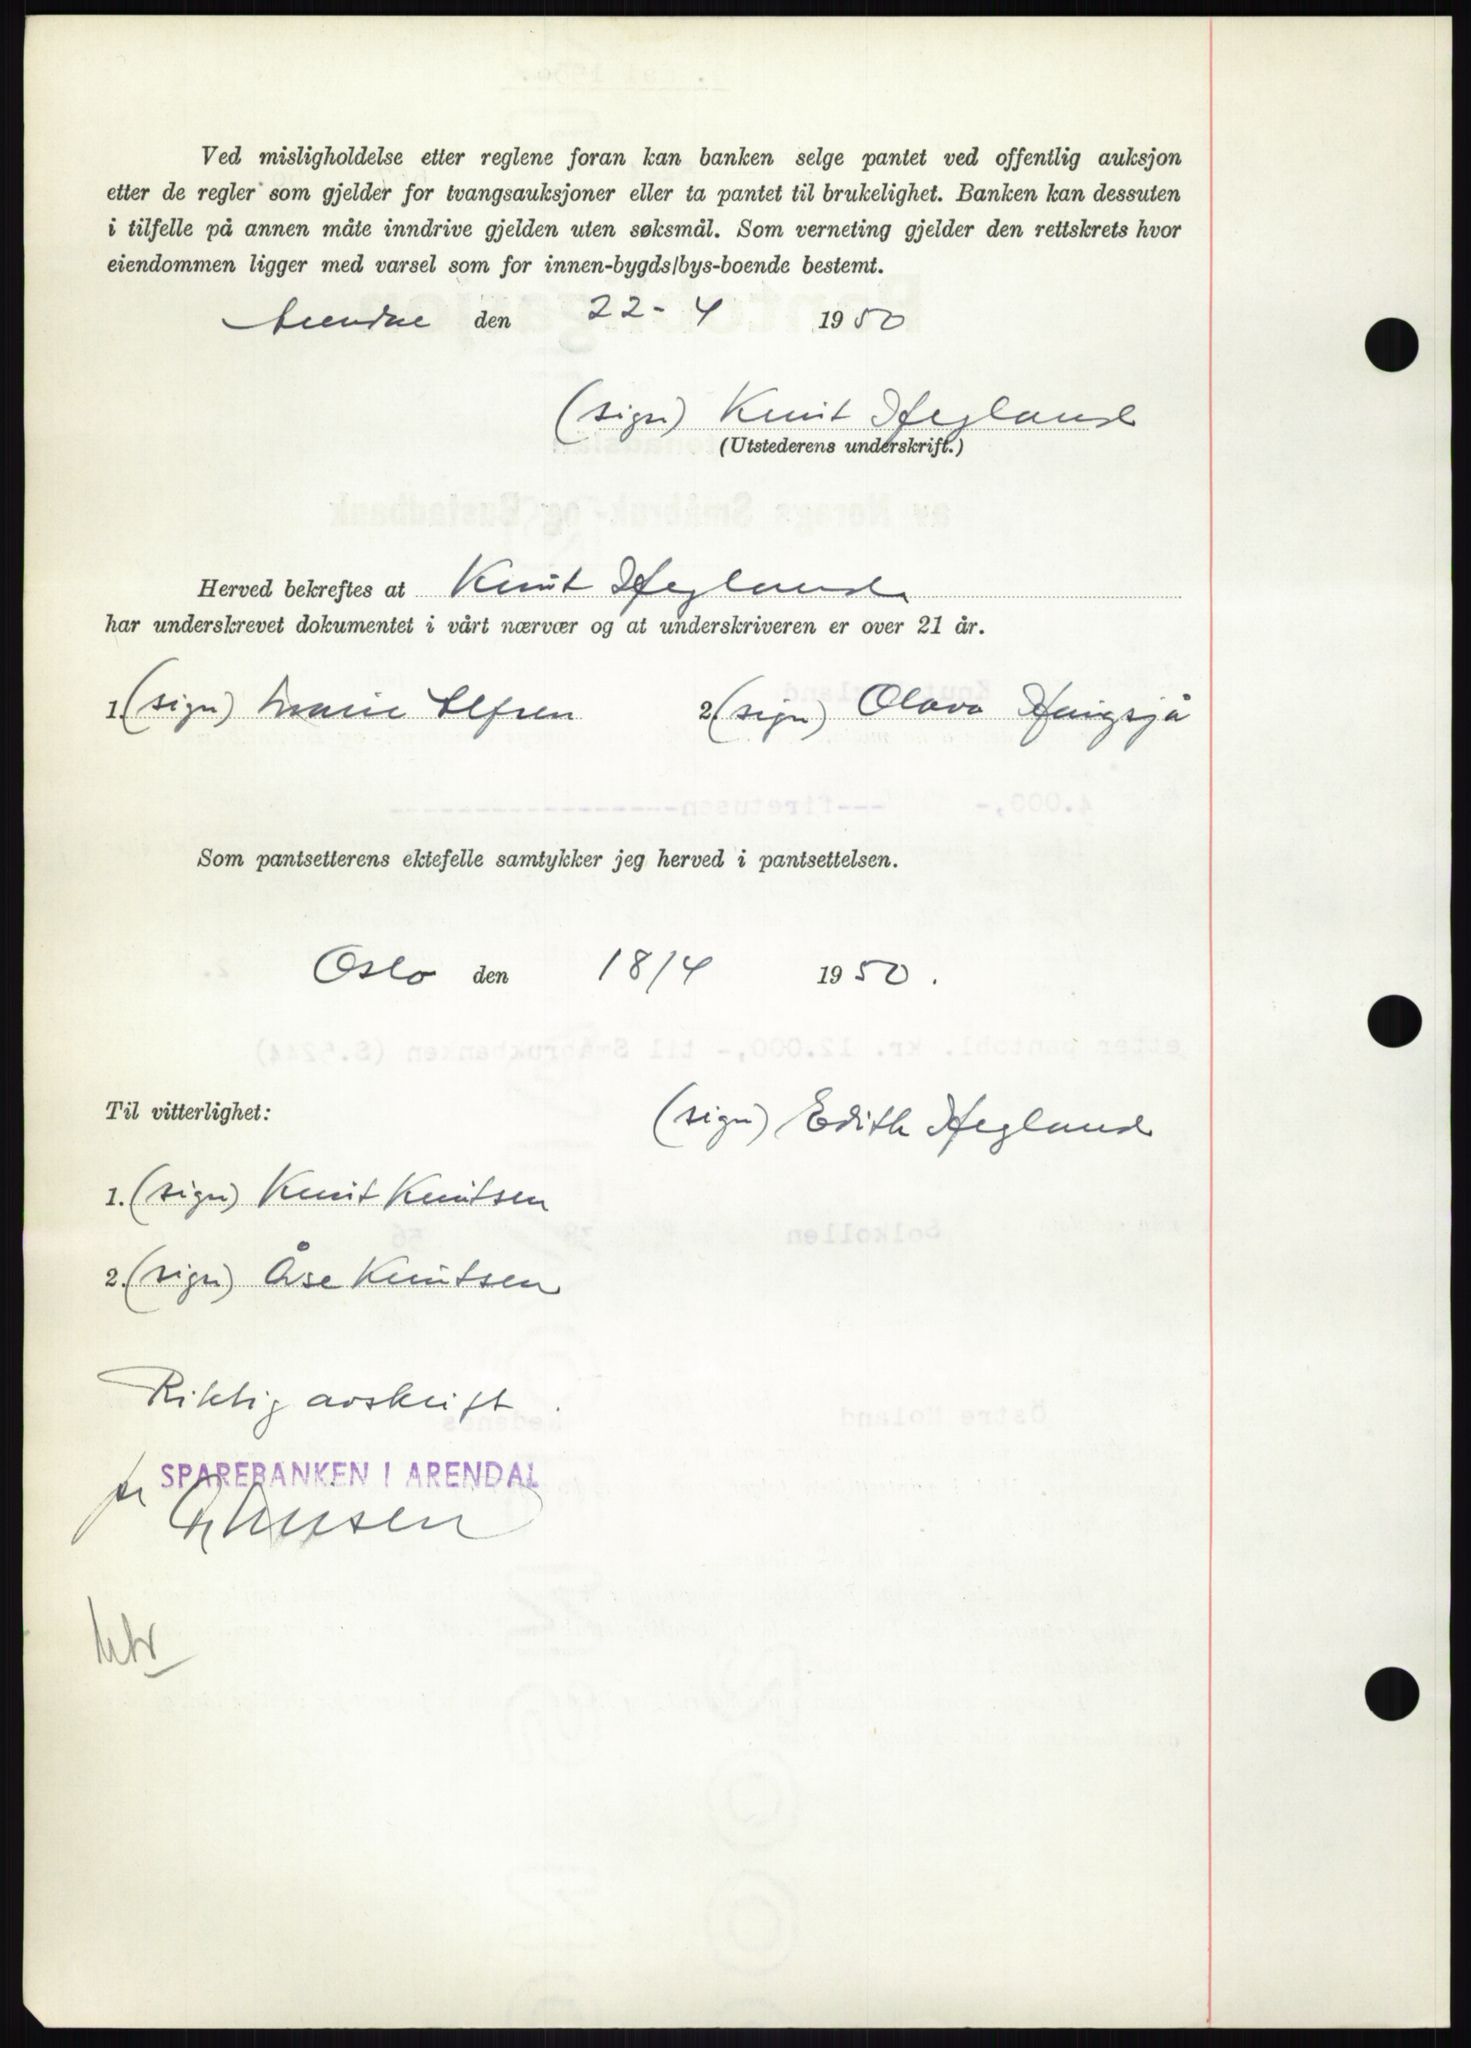 Ved misligholdelse etter reglene foran kan banken selge pantet ved offentlig auksjon
etter de regler som gjelder for tvangsauksjoner eller ta pantet til brukelighet. Banken kan dessuten
i tilfelle på annen måte inndrive gjelden uten søksmål. Som verneting gjelder den rettskrets hvor
eiendommen ligger med varsel som for innen-bygds/bys-boende bestemt.
den 22-4 1950
(sign) Knut Hegland
(Utstederens underskrift.)
Herved bekreftes at Knut Hegland
har underskrevet dokumentet i vårt nærvær og at underskriveren er over 21 år.
1. (sign) Marie 2. (sign) Olava
Som pantsetterens ektefelle samtykker jeg herved i pantsettelsen.
Oslo den 18/4 1950.
Til vitterlighet:
(sign) Edith Hegland
1. (sign) Knut Knutsen
2. (sign) Åse Knutsen
Riktig avskrift
for SPAREBANKEN I ARENDAL